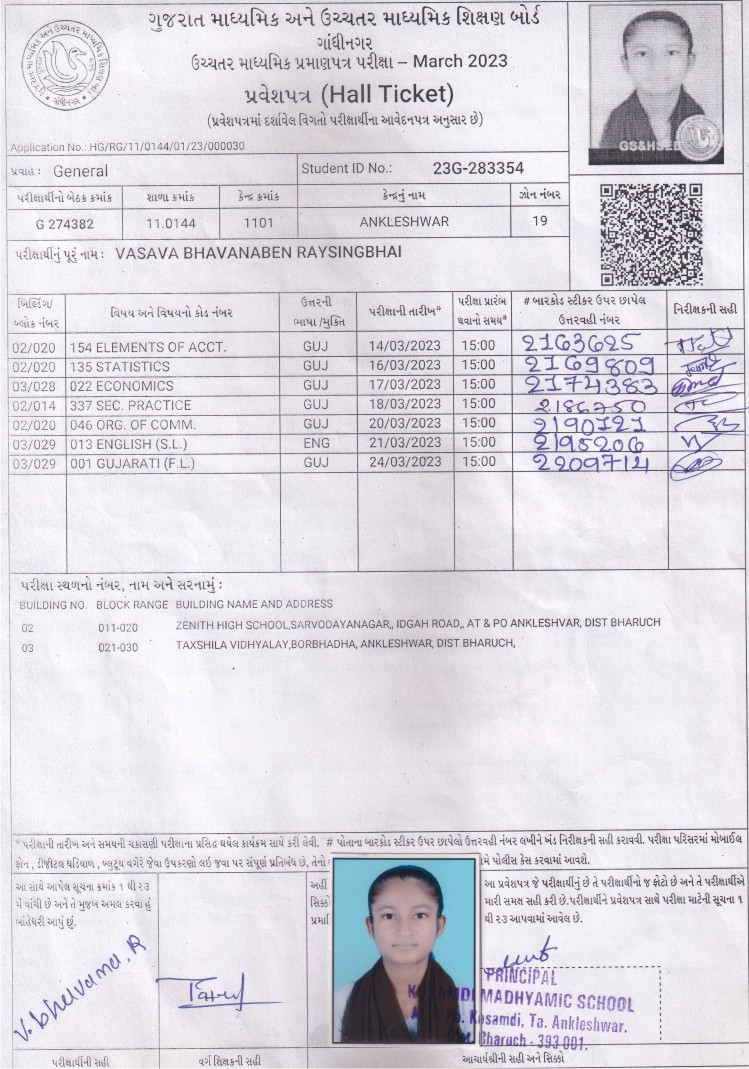 ગુજરાત માધ્યમિક અને ઉચ્ચતર માધ્યમિક શિક્ષણ બોર્ડ
ગાંધીનગર
ઉચ્ચતર માધ્યમિક પ્રમાણપત્ર પરીક્ષા – March 2023
પ્રવેશપત્ર (Hall Ticket)
(પ્રવેશપત્રમાં દર્શાવેલ વિગતો પરીક્ષાર્થીના આવેદનપત્ર અનુસાર છે)
GS&HSEB
Application No.: HG/RG/11/0144/01/23/000030
પ્રવાહ : General Student ID No.: 23G-283354
પરીક્ષાર્થીનો બેઠક ક્રમાંક શાળા ક્રમાંક કેન્દ્ર ક્રમાંક કેન્દ્રનું નામ ઝોન નંબર
G 274382 11.0144 1101 ANKLESHWAR 19
પરીક્ષાર્થીનું પૂરું નામ : VASAVA BHAVANABEN RAYSINGBHAI
બિલ્ડિંગ/ બ્લોક નંબર વિષય અને વિષયનો કોડ નંબર ઉત્તરની ભાષા /મુક્તિ પરીક્ષાની તારીખ* પરીક્ષા પ્રારંભ થવાનો સમય* # બારકોડ સ્ટીકર ઉપર છાપેલ ઉત્તરવહી નંબર નિરીક્ષકની સહી
02/020 154 ELEMENTS OF ACCT. GUJ 14/03/2023 15:00 2163625
02/020 135 STATISTICS GUJ 16/03/2023 15:00 2169809
03/028 022 ECONOMICS GUJ 17/03/2023 15:00 2174383
02/014 337 SEC. PRACTICE GUJ 18/03/2023 15:00 2186750
02/020 046 ORG. OF COMM. GUJ 20/03/2023 15:00 2190121
03/029 013 ENGLISH (S.L.) ENG 21/03/2023 15:00 2195206
03/029 001 GUJARATI (F.L.) GUJ 24/03/2023 15:00 2209714
પરીક્ષા સ્થળનો નંબર, નામ અને સરનામું :
BUILDING NO. BLOCK RANGE BUILDING NAME AND ADDRESS
02 011-020 ZENITH HIGH SCHOOL,SARVODAYANAGAR,, IDGAH ROAD,, AT & PO ANKLESHVAR, DIST BHARUCH
03 021-030 TAXSHILA VIDHYALAY,BORBHADHA, ANKLESHWAR, DIST BHARUCH,
* પરીક્ષાની તારીખ અને સમયની ચકાસણી પરીક્ષાના પ્રસિદ્ધ થયેલ કાર્યક્રમ સાથે કરી લેવી. # પોતાના બારકોડ સ્ટીકર ઉપર છાપેલો ઉત્તરવહી નંબર લખીને ખંડ નિરીક્ષકની સહી કરાવવી. પરીક્ષા પરિસરમાં મોબાઈલ
ફોન , ડીજીટલ ઘડિયાળ , બ્લુટૂથ વગેરે જેવા ઉપકરણો લઇ જવા પર સંપૂર્ણ પ્રતિબંધ છે, તેનો પોલીસ કેસ કરવામાં આવશે.
આ સાથે આપેલ સૂચના ક્રમાંક ૧ થી ૨૩
મેં વાંચી છે અને તે મુજબ અમલ કરવા હું
બાંહેધરી આપું છું.
V. Bhavana. R
અહીં
સિક્કો
આ પ્રવેશપત્ર જે પરીક્ષાર્થીનું છે તે પરીક્ષાર્થીનો જ ફોટો છે અને તે પરીક્ષાર્થીએ
મારી સમક્ષ સહી કરી છે.પરીક્ષાર્થીને પ્રવેશપત્ર સાથે પરીક્ષા માટેની સૂચના ૧
થી ૨૩ આપવામાં આવેલ છે.
PRINCIPAL
KOSAMDI MADHYAMIC SCHOOL
Kosamdi, Ta. Ankleshwar.
Bharuch - 393 001.
પરીક્ષાર્થીની સહી વર્ગ શિક્ષકની સહી આચાર્યશ્રીની સહી અને સિક્કો